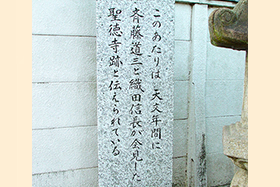 このあたりは 天文年間に
斉藤道三と織田信長が会見した
聖徳寺跡と伝えられている